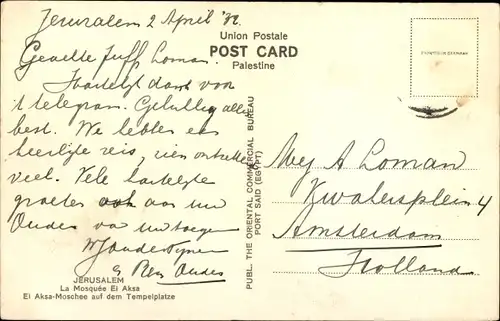 Jerusalem 2 April '32
Geachte Juff. Loman.
Hartelijk dank voor
't telegram. Gelukkig alles
best. We hebben een
heerlijke reis, zien ontzettend
veel. Vele hartelijke
groeten ook aan uw
Ouders van uw toegen.
JERUSALEM
La Mosquée El Aksa
El Aksa-Moschee auf dem Tempelplatze
Union Postale
POST CARD
Palestine
PUBL. THE ORIENTAL COMMERCIAL BUREAU
PORT SAID (EGYPT)
Mej A Loman
Kwakersplein 4
Amsterdam
Holland